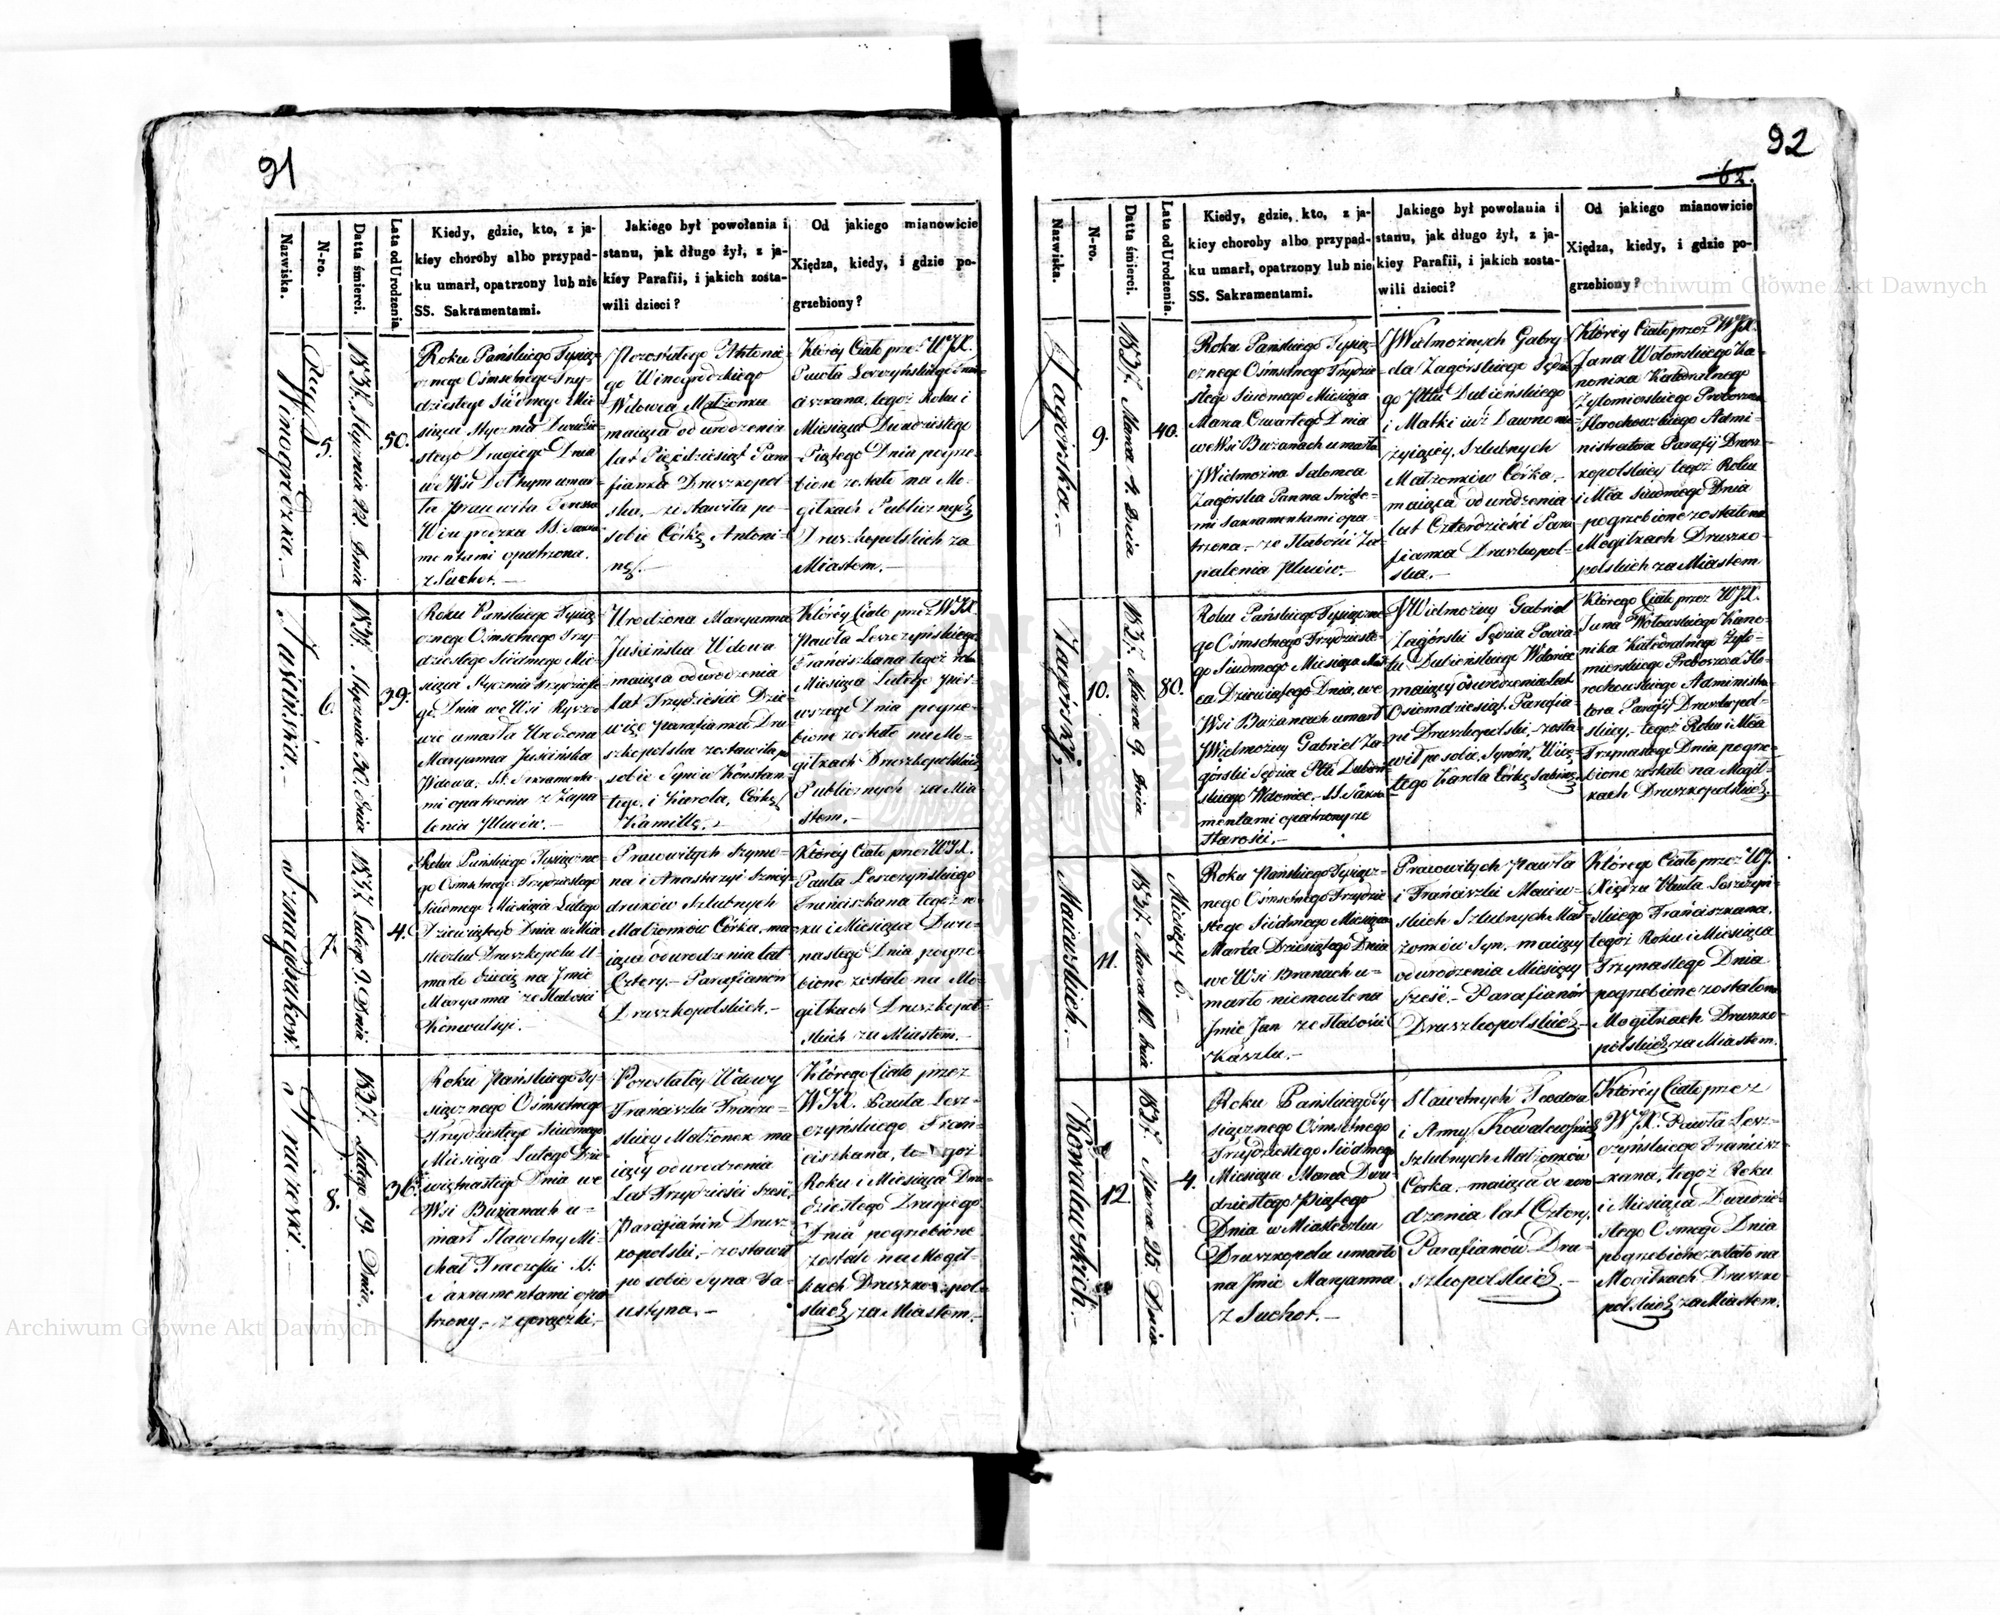 91
Nazwiska.
N-ro.
Datta śmierci.
Lata od Urodzenia.
Kiedy, gdzie, kto, z ja-
kiey choroby albo przypad-
ku umarł, opatrzony lub nie
SS. Sakramentami.
Jakiego był powołania i
stanu, jak długo żył, z ja-
kiey Parafii, i jakich zosta-
wili dzieci?
Od jakiego mianowicie
Xiędza, kiedy, i gdzie po-
grzebiony?
Winogrodzka. —
5.
1837. Stycznia 22. Dnia
50.
Roku Pańskiego Tysiąc-
cznego Ośmsetnego Trzy-
dziestego Siódmego Mie-
siąca Stycznia Dwudzie-
stego Drugiego Dnia
we Wsi umar-
ła pracowita Teressa
SS. Sakra-
mentami opatrzona.
z Suchot. —
Pozostałego Antonie-
go Winogrodzkiego
Wdowa Małżonka
maiąca od urodzenia
lat Pięćdziesiąt Para-
fianka Druszkopol-
ska, zostawiła po
sobie Córkę Antoni-
nę. —
Którey Ciało przez WJX.
Pawła Leszczyńskiego Fran-
ciszkana, tegoż Roku i
Miesiąca Dwudziestego
Piątego Dnia pogrze-
bione zostało na Mo-
giłkach Publicznych
Druszkopolskich za
Miastem. —
Jusińska. —
6.
1837. Stycznia 30. Dnia
39.
Roku Pańskiego Tysią-
cznego Ośmsetnego Trzy-
dziestego Siódmego Mie-
siąca Stycznia trzydzieste-
go Dnia we Wsi
umarła Urodzona
Maryanna Jusińska
Wdowa, SS. Sakramenta-
mi opatrzona z Zapa-
lenia Płuców. —
Urodzona Maryanna
Jusińska Wdowa
maiąca od urodzenia
lat Trzydzieście Dzie-
więć parafianka Dru-
szkopolska zostawiła po
sobie Synów Konstan-
tego, i Karola, Córkę
Kamillę. —
Którey Ciało przez WJX.
Pawła Leszczyńskiego
Franciszkana tegoż roku
Miesiąca Lutego pier-
wszego Dnia pogrze-
bione zostało na Mo-
giłkach Druszkopolskich
Publicznych za Mia-
stem. —
7.
1837. Lutego 9. Dnia
4.
Roku Pańskiego Tysiączne-
go Ośmsetnego Trzydziestego
Siódmego Miesiąca Lutego
Dziewiątego Dnia w Mia-
steczku Druszkopolu U-
marło dziecię na Jmie
Maryanna ze Słabości
Konwulsyi. —
Pracowitych Szymo-
na i Anastazyi
Szlubnych
Małżonków Córka, ma-
iąca od urodzenia lat
Cztery. — Parafianów
Druszkopolskich. —
Którey Ciało przez WJX.
Pawła Leszczyńskiego
Franciszkana tegoż ro-
ku i Miesiąca Dwu-
nastego Dnia pogrze-
bione zostało na Mo-
giłkach Druszkopol-
skich za Miastem. —
8.
1837. Lutego 19. Dnia.
36.
Roku Pańskiego Ty-
siącznego Ośmsetnego
Trzydziestego Siódmego
Miesiąca Lutego Dzie-
więtnastego Dnia we
Wsi Bużanach u-
marł Sławetny Mi-
chał SS.
Sakramentami opa-
trzony, z gorączki. —
Pozostałey Wdowy
Franciszki
Małżonek ma-
iący od urodzenia
Lat Trzydzieści Sześć,
Parafianin Drusz-
kopolski, zostawił
po sobie Syna
Którego Ciało przez
WJX. Pawła Lesz-
czyńskiego Fran-
ciszkana, tegoż
Roku i Miesiąca Dwu-
dziestego Drugiego
Dnia pogrzebione
zostało na Mogił-
kach Druszkopol-
skich za Miastem. —
92
62.
Nazwiska.
N-ro.
Datta śmierci.
Lata od Urodzenia.
Kiedy, gdzie, kto, z ja-
kiey choroby albo przypad-
ku umarł, opatrzony lub nie
SS. Sakramentami.
Jakiego był powołania i
stanu, jak długo żył, z ja-
kiey Parafii, i jakich zosta-
wili dzieci?
Od jakiego mianowicie
Xiędza, kiedy, i gdzie po-
grzebiony?
Zagórska. —
9.
1837. Marca 4. Dnia
40.
Roku Pańskiego Tysią-
cznego Ośmsetnego Trzydzie-
stego Siódmego Miesiąca
Marca Czwartego Dnia
we Wsi Bużanach umarła
JWielmożna Salomea
Zagórska Panna Święte-
mi Sakramentami opa-
trzona. — ze Słabości Za-
palenia Płuców. —
JWielmożnych Gabry-
ela Zagórskiego Sędzie-
go Pttu Dubieńskiego
i Matki już Dawno nie
żyjącey, Szlubnych
Małżonków Córka. —
maiąca od urodzenia
lat Czterdzieści Para-
fianka Druszkopol-
ska. —
Którey Ciało przez WJX.
Jana Wołowskiego Ka-
nonika Katedralnego
Żytomierskiego Proboszcza
Horochowskiego Admi-
nistratora Parafij Drusz-
kopolskiey tegoż Roku
i Mca Siódmego Dnia
pogrzebione zostało na
Mogiłkach Druszko-
polskich za Miastem
Zagórski. —
10.
1837. Marca 9. Dnia
80.
Roku Pańskiego Tysiączne-
go Ośmsetnego Trzydzieste-
go Siódmego Miesiąca Mar-
ca Dziewiątego Dnia, we
Wsi Bużanach umarł
JWielmożny Gabriel Za-
górski Sędzia Pttu Dubień-
skiego Wdowiec. — SS. Sakra-
mentami opatrzony ze
Starości. —
JWielmożny Gabriel
Zagórski Sędzia Powia-
tu Dubieńskiego Wdowiec
maiący od urodzenia lat
Osiemdziesiąt. Parafia-
nin Druszkopolski, zosta-
wił po sobie, Synów,
Karola Córkę Sabinę
Którego Ciało przez WJX.
Jana Wołowskiego Kano-
nika Katedralnego Żyto-
mierskiego Proboszcza Ho-
rochowskiego Administra-
tora Parafij Druszkopol-
skiey, tegoż Roku i Mca
Trzynastego Dnia pogrze-
bione zostało na Mogił-
kach Druszkopolskich
Maiewskich. —
11.
1837. Marca 10. Dnia
Miesięcy 6. —
Roku Pańskiego Tysiącz-
nego Ośmsetnego Trzydzie-
stego Siódmego Miesiąca
Marca Dziesiątego Dnia
we Wsi Branach u-
marło niemowle na
Jmie Jan ze Słabości
Kaszlu. —
Pracowitych Pawła
i Franciszki Maiew-
skich Szlubnych Mał-
żonków Syn. maiący
od urodzenia Miesięcy
Sześć. — Parafianów
Druszkopolskich —
Którego Ciało przez WJ.
Xiędza Pawła Leszczyń-
skiego Franciszkana,
tegoż Roku i Miesiąca
Trzynastego Dnia
pogrzebione zostało na
Mogiłkach Druszko-
polskich za Miastem.
Kowalewskich. —
12.
1837. Marca 25. Dnia
4.
Roku Pańskiego Ty-
siącznego Ośmsetnego
Trzydziestego Siódmego
Miesiąca Marca Dwu-
dziestego Piątego
Dnia w Miasteczku
Druszkopolu umarło
na Jmie Maryanna
z Suchot. —
Sławetnych Teodora
i Anny Kowalewskich
Szlubnych Małżonków
Córka. maiąca od uro-
dzenia lat Cztery,
Parafianów Dru-
szkopolskich. —
Którey Ciało przez
WJX. Pawła Lesz-
czyńskiego Francisz-
kana, tegoż Roku
i Miesiąca Dwudzie-
stego Osmego Dnia
pogrzebione zostało na
Mogiłkach Druszko-
polskich za Miastem.
Archiwum Główne Akt Dawnych
Archiwum Główne Akt Dawnych